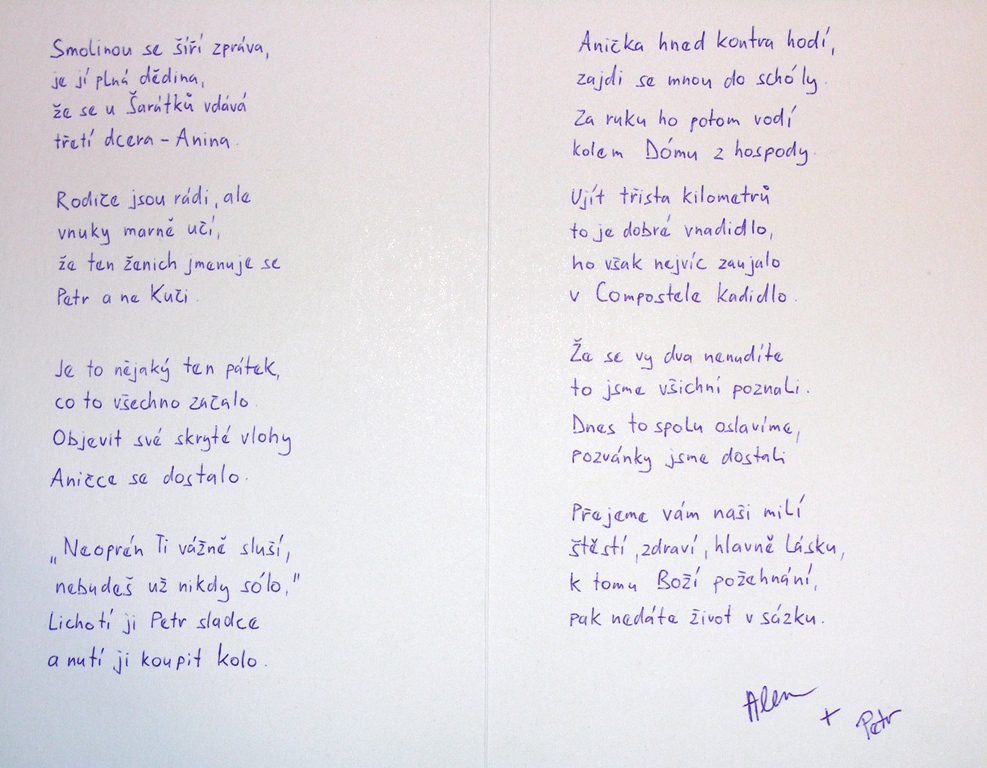 Smolinou se šíří zpráva,
je jí plná dědina,
že se u Šarátků vdává
třetí dcera - Anina.
Rodiče jsou rádi, ale
vnuky marně učí,
že ten ženich jmenuje se
Petr a ne Kuči.
Je to nějaký ten pátek,
co to všechno začalo.
Objevit své skryté vlohy
Aničce se dostalo.
„Neoprén Ti vážně sluší,
nebudeš už nikdy sólo,"
Lichotí ji Petr sladce
a nutí ji koupit kolo.
Anička hned kontra hodí,
zajdi se mnou do schóly.
Za ruku ho potom vodí
kolem Dómu z hospody.
Ujít třista kilometrů
to je dobré vnadidlo,
ho však nejvíc zaujalo
v Compostele kadidlo.
Že se vy dva nenudíte
to jsme všichni poznali.
Dnes to spolu oslavíme,
pozvánky jsme dostali
Přejeme vám naši milí
štěstí, zdraví, hlavně lásku,
k tomu Boží požehnání,
pak nedáte život v sázku.
+ Petr